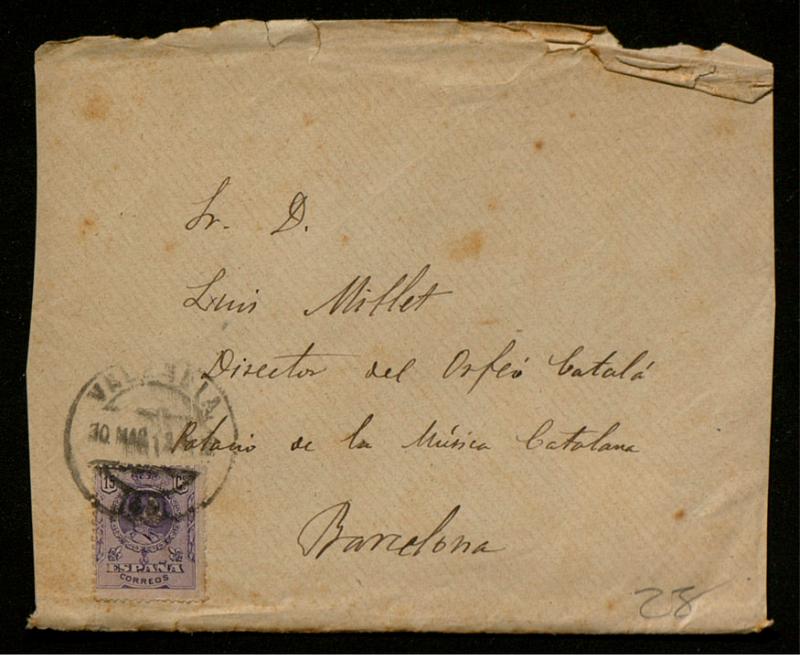 Sr. D.
Luis Millet
Director del Orfeó Catalá
Palacio de la Música Catalana
Barcelona
30 MAR
15 C
ESPAÑA
CORREOS
28